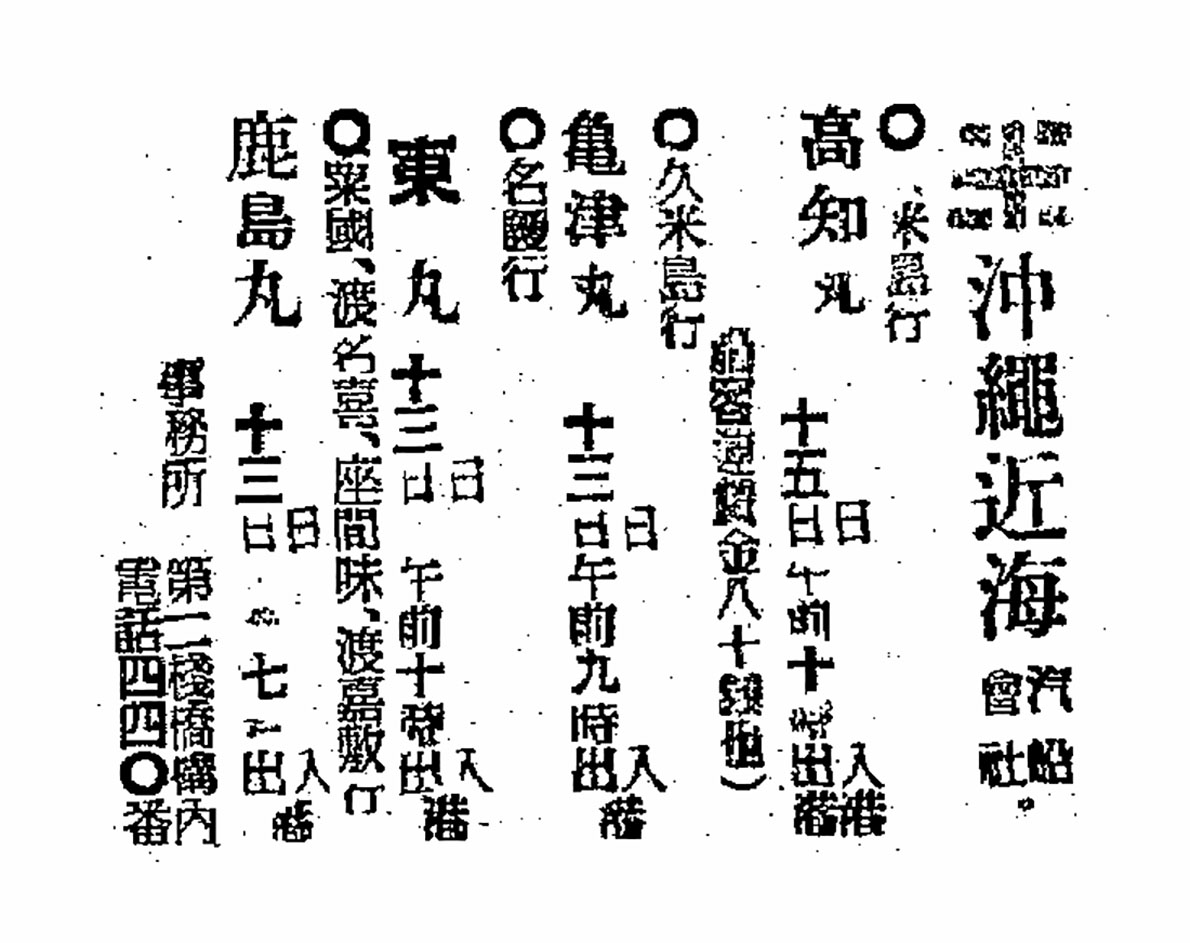 沖縄近海汽船會社
○久米島行
高知丸 十五日 日午前十時出港 入港
金八十錢也）
○久米島行
亀津丸 十三日 日午前九時出 入港
○名護行
東丸 十三日 日 午前十時出 入港
○粟國、渡名喜、座間味、渡嘉敷行
鹿島丸 十三日 日 七 出 入港
事務所 第二棧橋構内
電話四四〇番